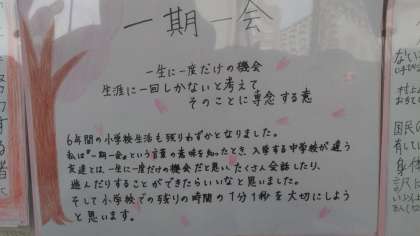 一期一会
一生に一度だけの機会
生涯に一回しかないと考えて
そのことに専念する意
6年間の小学校生活も残りわずかとなりました。
私は「一期一会」という言葉の意味を知ったとき、入学する中学校が違う
友達とは、一生に一度だけの機会だと思い、たくさん会話したり、
遊んだりすることができたらいいなと思いました。
そして小学校での残りの時間の1分1秒を大切にしよう
と思います。